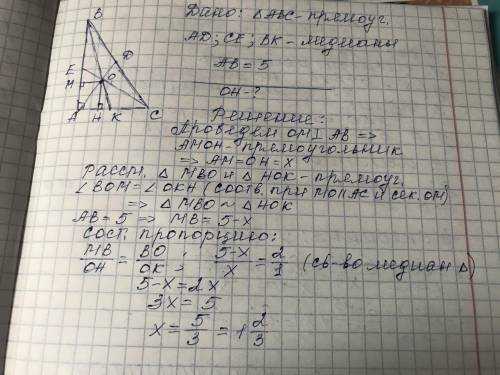 B
D
E
O
M
A H K C
Дано: △ABC - прямоуг.
AD; CE; BK - медианы
AB = 5
OH - ?
Решение:
Проведем OM ⊥ AB =>
AMOH - прямоугольник
=> AM = OH = x
Рассм. △ MBO и △ HOK - прямоуг.
∠BOM = ∠OKH (соотв. при MO || AC и сек. OM)
=> △ MBO ~ △ HOK
AB = 5 => MB = 5 - x
Сост. пропорцию:
MB/OH = BO/OK; (5-x)/x = 2/1 (св-во медиан △)
5 - x = 2x
3x = 5
x = 5/3 = 1 2/3